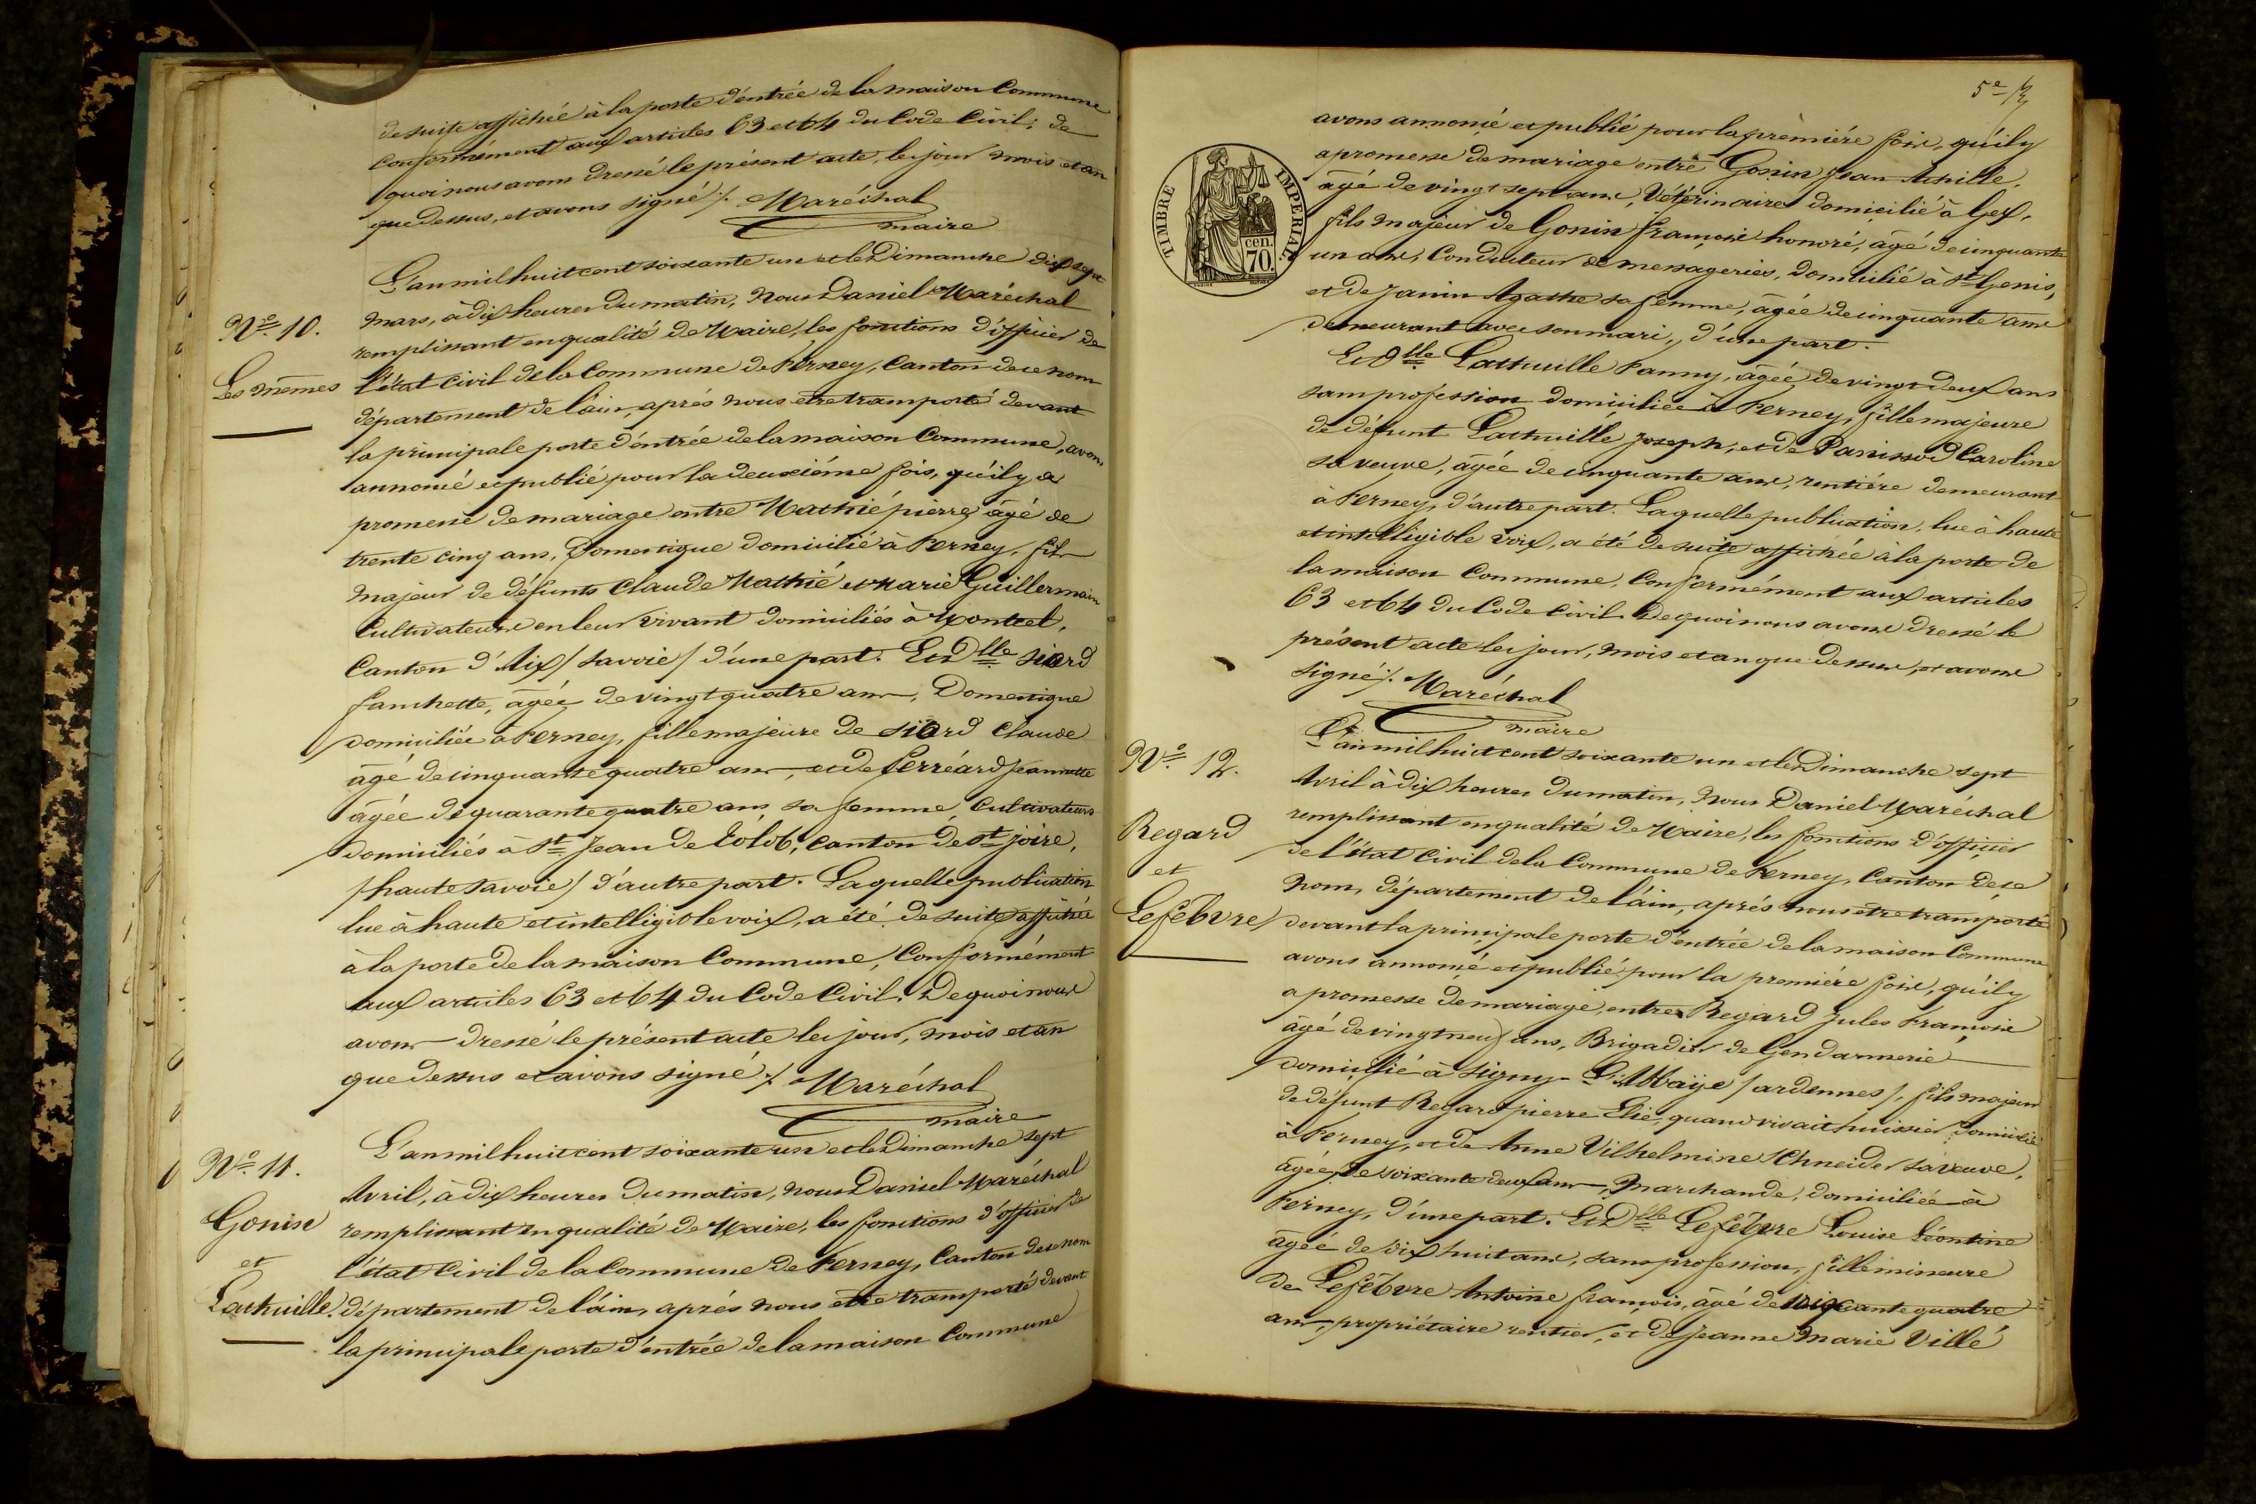 de suite affichée à la porte d'entrée de la maison Commune
conformément aux articles 63 et 64 du Code Civil; de
quoi nous avons dressé le présent acte, les jour mois et an
que dessus, et avons signé ./. Maréchal
maire
N.º 10.
Les mêmes
L'an mil huit cent soixante un et le Dimanche dix sept
Mars, à dix heures du matin, Nous Daniel Maréchal
remplissant en qualité de Maire, les fonctions d'officier de
l'état civil de la Commune de Ferney, Canton de ce nom
département de l'ain, après nous etre transporté devant
la principale porte d'entrée de la maison Commune, avons
annoncé et publié pour la deuxiéme fois, qu'il y a
promesse de mariage entre Mathié pierre, âgé de
trente cinq ans, Domestique domicilié à Ferney, fils
majeur de défunts Claude Mathié et Marie Guillermain
Cultivateurs en leur vivant domiciliés à Montcel,
Canton d'Aix / Savoie / d'une part. Et Dlle Siord
fanchette, âgée de vingt quatre ans, Domestique
domiciliée à Ferney, fille majeure de Siord Claude
âgé de cinquante quatre ans, et de Perréard Jeannette
âgée de quarante quatre ans sa femme, Cultivateurs
domiciliés à St Jean de Tolob, canton de St joire,
/ haute Savoie / d'autre part. Laquelle publication
lue à haute et intelligible voix, a été de suite affichée
à la porte de la maison Commune, Conformément
aux articles 63 et 64 du Code Civil. De quoi nous
avons dressé le présent acte les jour, mois et an
que dessus et avons signé ./. Maréchal
maire
N.º 11.
Gonin
et
Lathuille.
L'an mil huit cent soixante un et le Dimanche sept
Avril, à dix heures du matin, nous Daniel Maréchal
remplissant en qualité de Maire, les fonctions d'officier de
l'état Civil de la Commune de Ferney, Canton de ce nom
département de l'ain, après nous etre transporté devant
la principale porte d'entrée de la maison Commune
5e
TIMBRE IMPERIAL.
cen.
70.
avons annoncé et publié pour la prèmiére fois, qu'il y
a promesse de mariage entre Gonin Jean Achille,
âgé de vingt sept ans, Vétérinaire domicilié à Gex,
fils majeur de Gonin françois honoré, âgé de cinquante
un ans, Conducteur de messageries, domicilié à St Genis,
et de Janin Agathe sa femme, âgée de cinquante ans
demeurant avec son mari, d'une part.
Et Dlle Lathuille Fanny, âgée de vingt deux ans
sans profession domiciliée à Ferney, fille majeure
de défunt Lathuille Joseph, et de Panissod Caroline
sa veuve, âgée de cinquante ans, rentiére demeurant
à Ferney, d'autre part. Laquelle publication, lue à haute
et intelligible voix, a été de suite affichée à la porte de
la maison Commune, Conformément aux articles
63 et 64 du Code Civil. De quoi nous avons dressé le
présent acte les jour, mois et an que dessus, et avons
signé ./. Maréchal
maire
N.º 12.
Regard
et
Lefébvre
L'an mil huit cent soixante un et le Dimanche sept
Avril à dix heures du matin, Nous Daniel Maréchal
remplissant en qualité de Maire, les fonctions d'officier
de l'état Civil de la Commune de Ferney, Canton de ce
Nom, département de l'ain, après nous etre transporté
devant la principale porte d'entrée de la maison Commune
avons annoncé et publié pour la premiére fois, qu'il y
a promesse de mariage, entre Regard Jules François
âgé de vingt neuf ans, Brigadier de Gendarmerie
domicilié à Signy-L'Abbaÿe / ardennes /, fils majeur
de défunt Regard pierre Elie, quand vivait huissier domicilié
à Ferney, et de Anne Vilhelmine Schneider sa veuve,
âgée de soixante deux ans, Marchande, domiciliée à
Ferney, d'une part. Et Dlle Lefébvre Louise Léontine
âgée de dix huit ans, sans profession, fille mineure
de Lefébvre Antoine françois, âgé de soixante quatre
ans, propriétaire rentier, et de Jeanne Marie Villé